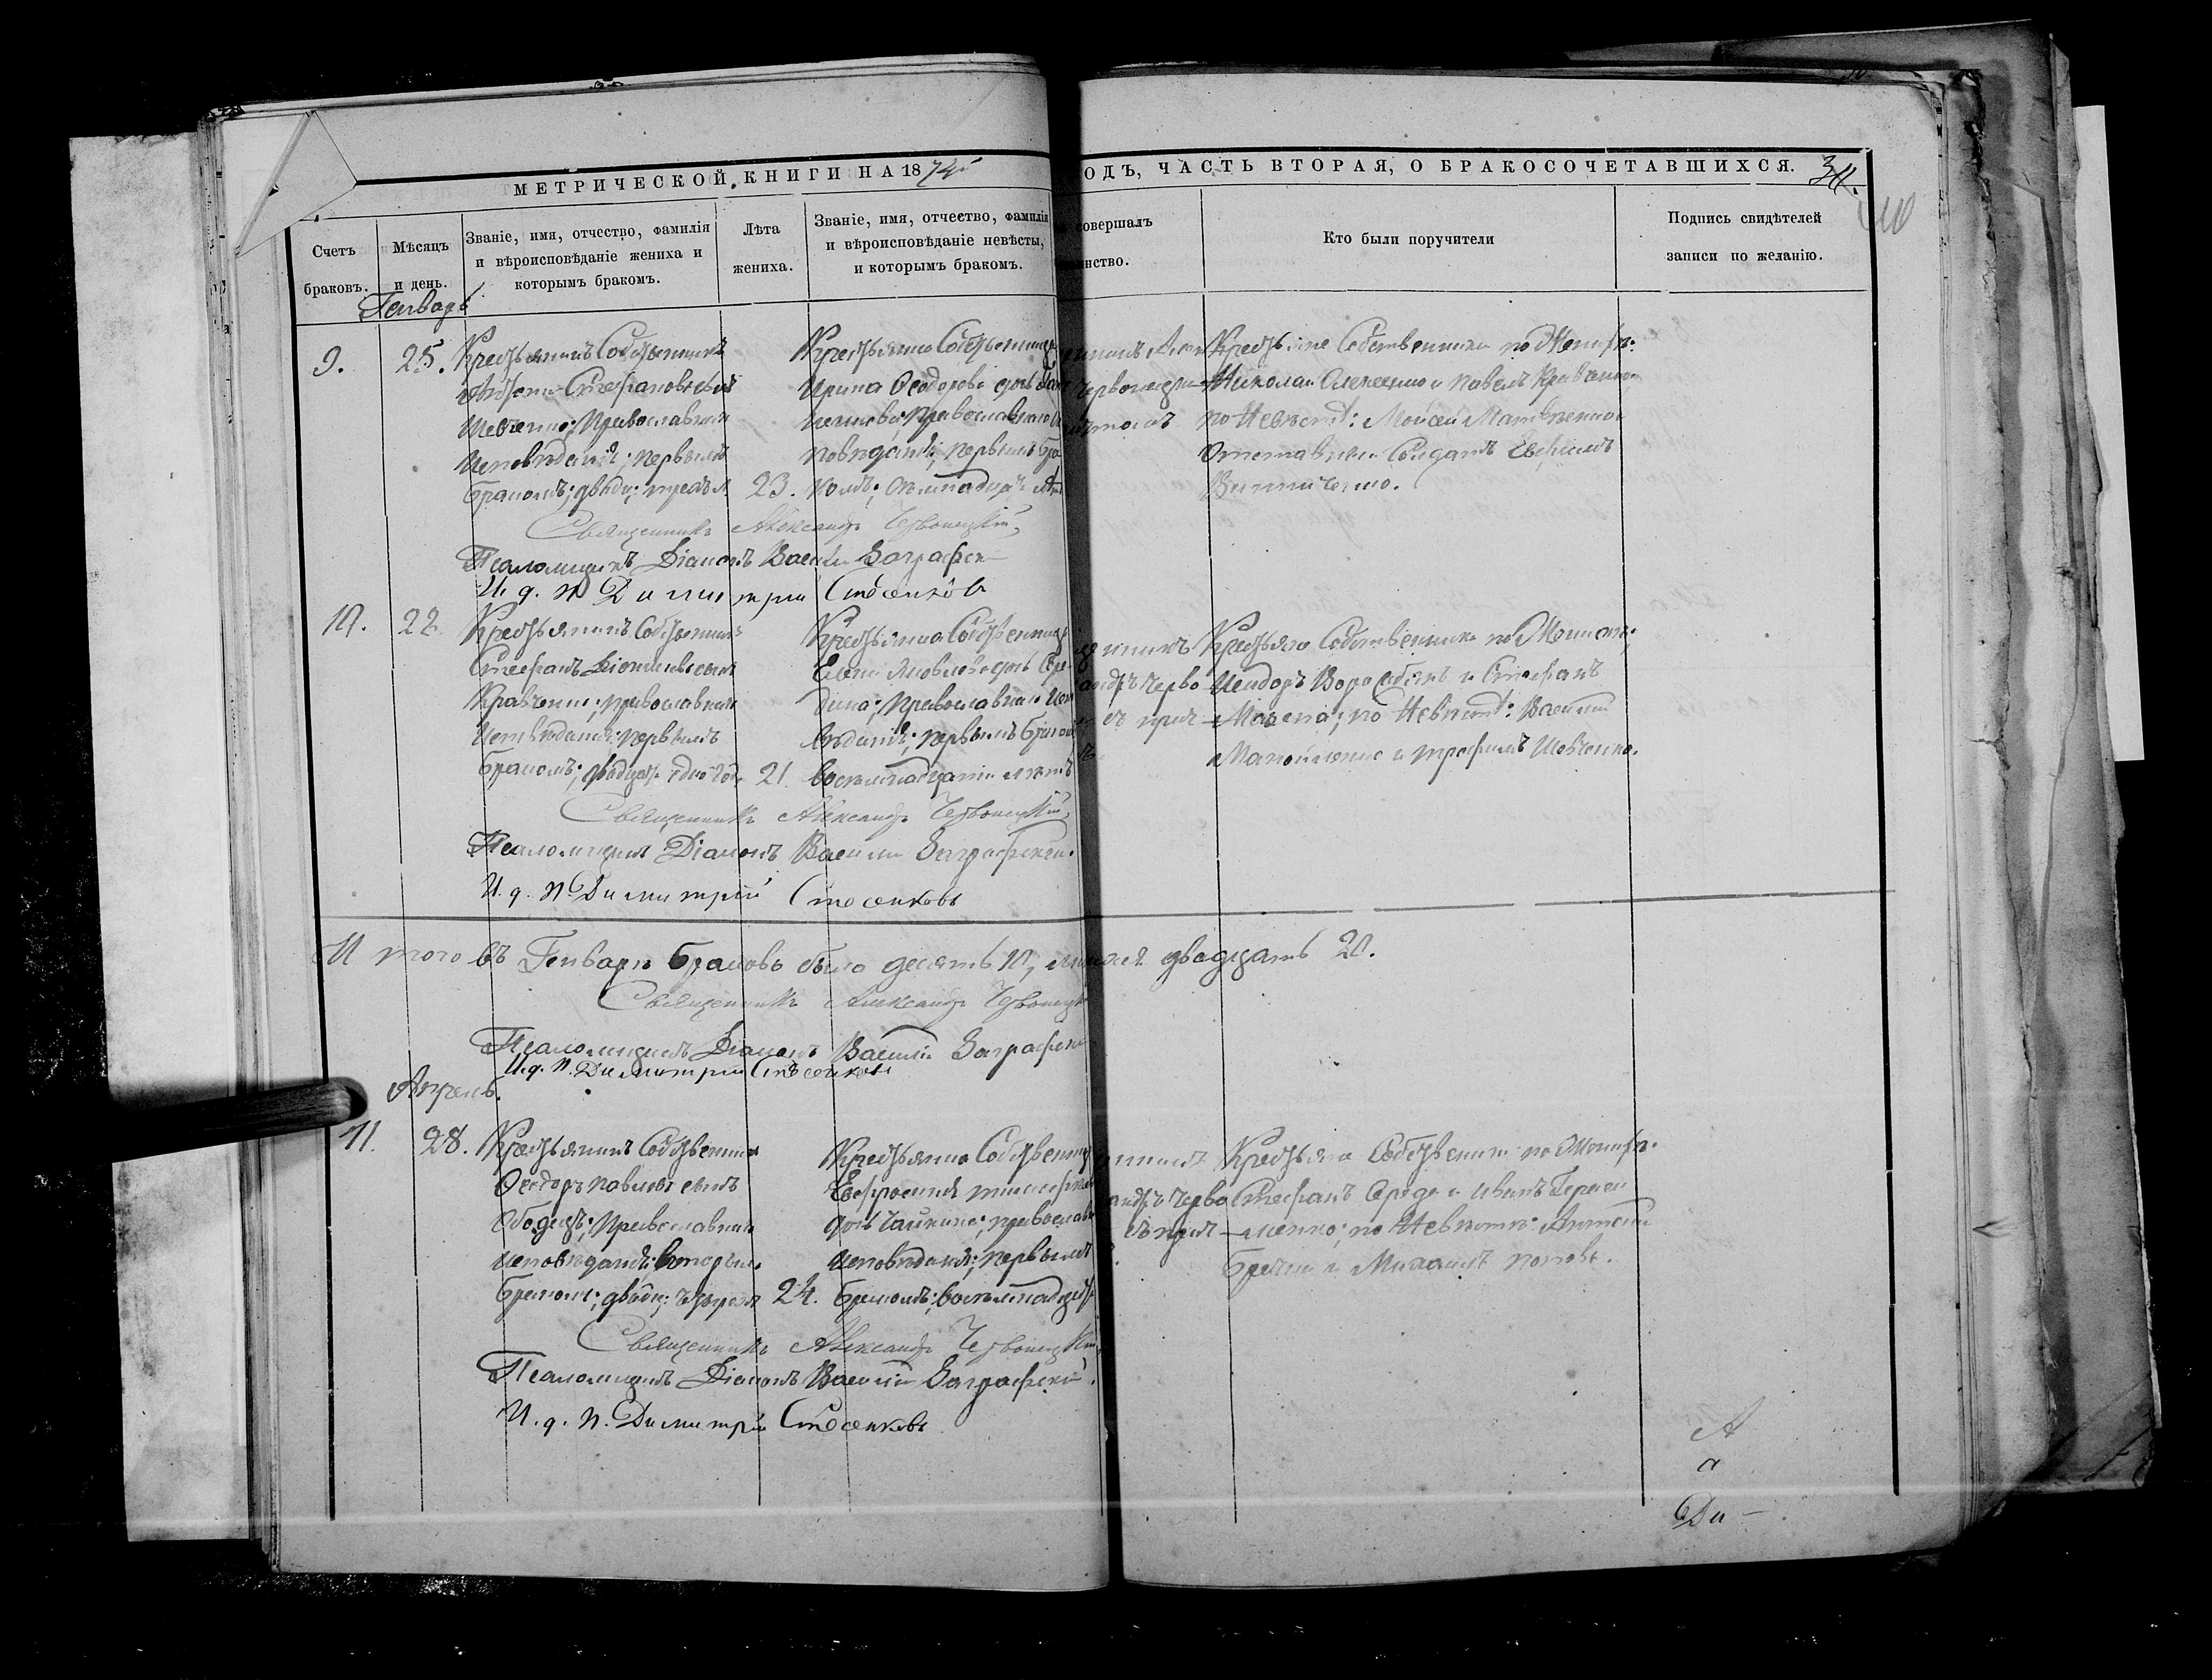 МЕТРИЧЕСКОЙ КНИГИ НА 1874й
ОДЪ, ЧАСТЬ ВТОРАЯ, О БРАКОСОЧЕТАВШИХСЯ.
Счетъ браковъ.
Мѣсяцъ и день.
Званіе, имя, отчество, фамилія
и вѣроисповѣданіе жениха и
которымъ бракомъ.
Лѣта
жениха.
Званіе, имя, отчество, фамилія
и вѣроисповѣданіе невѣсты,
и которымъ бракомъ.
совершалъ
инство.
Кто были поручители
Подпись свидѣтелей
записи по желанію.
Генварь
9. 25.
Крестьянинъ Собственникъ
Стефановъ сынъ
Шевченко; Православнаго
исповѣданія; первымъ
бракомъ; двадц: трехъ л. 23.
Крестьянка Собственница
Ирина Ѳеодорова дочь
Православнаго ис
повѣданія; первымъ бра
комъ;
Крестьяне Собственники по Жених:
Николай Алексеенко и Павелъ Кравченко
по Невѣстѣ: Моисей Матвѣенко
Отставной Солдатъ Евфимъ
Винниченко.
Священникъ Александръ Червонецкій
Псаломщикъ Діаконъ Василій Заграфскій
И. д. п. Димитрій Стосенковъ
10. 28.
Крестьянинъ Собственникъ
Стефанъ сынъ
Кравченко; православнаго
исповѣданія; первымъ
бракомъ; двадцати одно год. 21.
Крестьянка Собственница
Яковлева дочь Сере
дина; Православнаго исп
вѣданія; первымъ бракомъ
восемнадцати лѣтъ
Крестьяне Собственники по Жених:
и Стефанъ
Мазепа; по Невѣстѣ: Василій
Манойленко и Трофимъ Шевченко.
Священникъ Александръ Червонецкій
Псаломщикъ Діаконъ Василій Заграфскій.
И. д. п. Димитрій Стосенковъ
И того въ Генварѣ браковъ было десять 10, лицами двадцать 20.
Священникъ Александръ Червонецк
Псаломщикъ Діаконъ Василій Заграфскій
И. д. п. Димитрій Стосенковъ
Апрель.
11. 28.
Крестьянинъ Собственникъ
Ѳеодоръ Павловъ сынъ
Ободецъ; Православнаго
исповѣданія; вторымъ
бракомъ; двадц: четырехъ 24.
Крестьянка Собственниц
Евфросинія Тимоѳеева
дочь Чайкина; православн
исповѣданія; первымъ
бракомъ; восемнадцать
Крестьяне Собственник по Жених:
Стефанъ Середа и Иванъ Гераси
менко; по Невѣстѣ: Антоній
и Михаилъ Поповъ.
Священникъ Александръ Червонецкій
Псаломщикъ Діаконъ Василій Заграфскій.
И. д. п. Димитрій Стосенковъ
А
а
Ди-